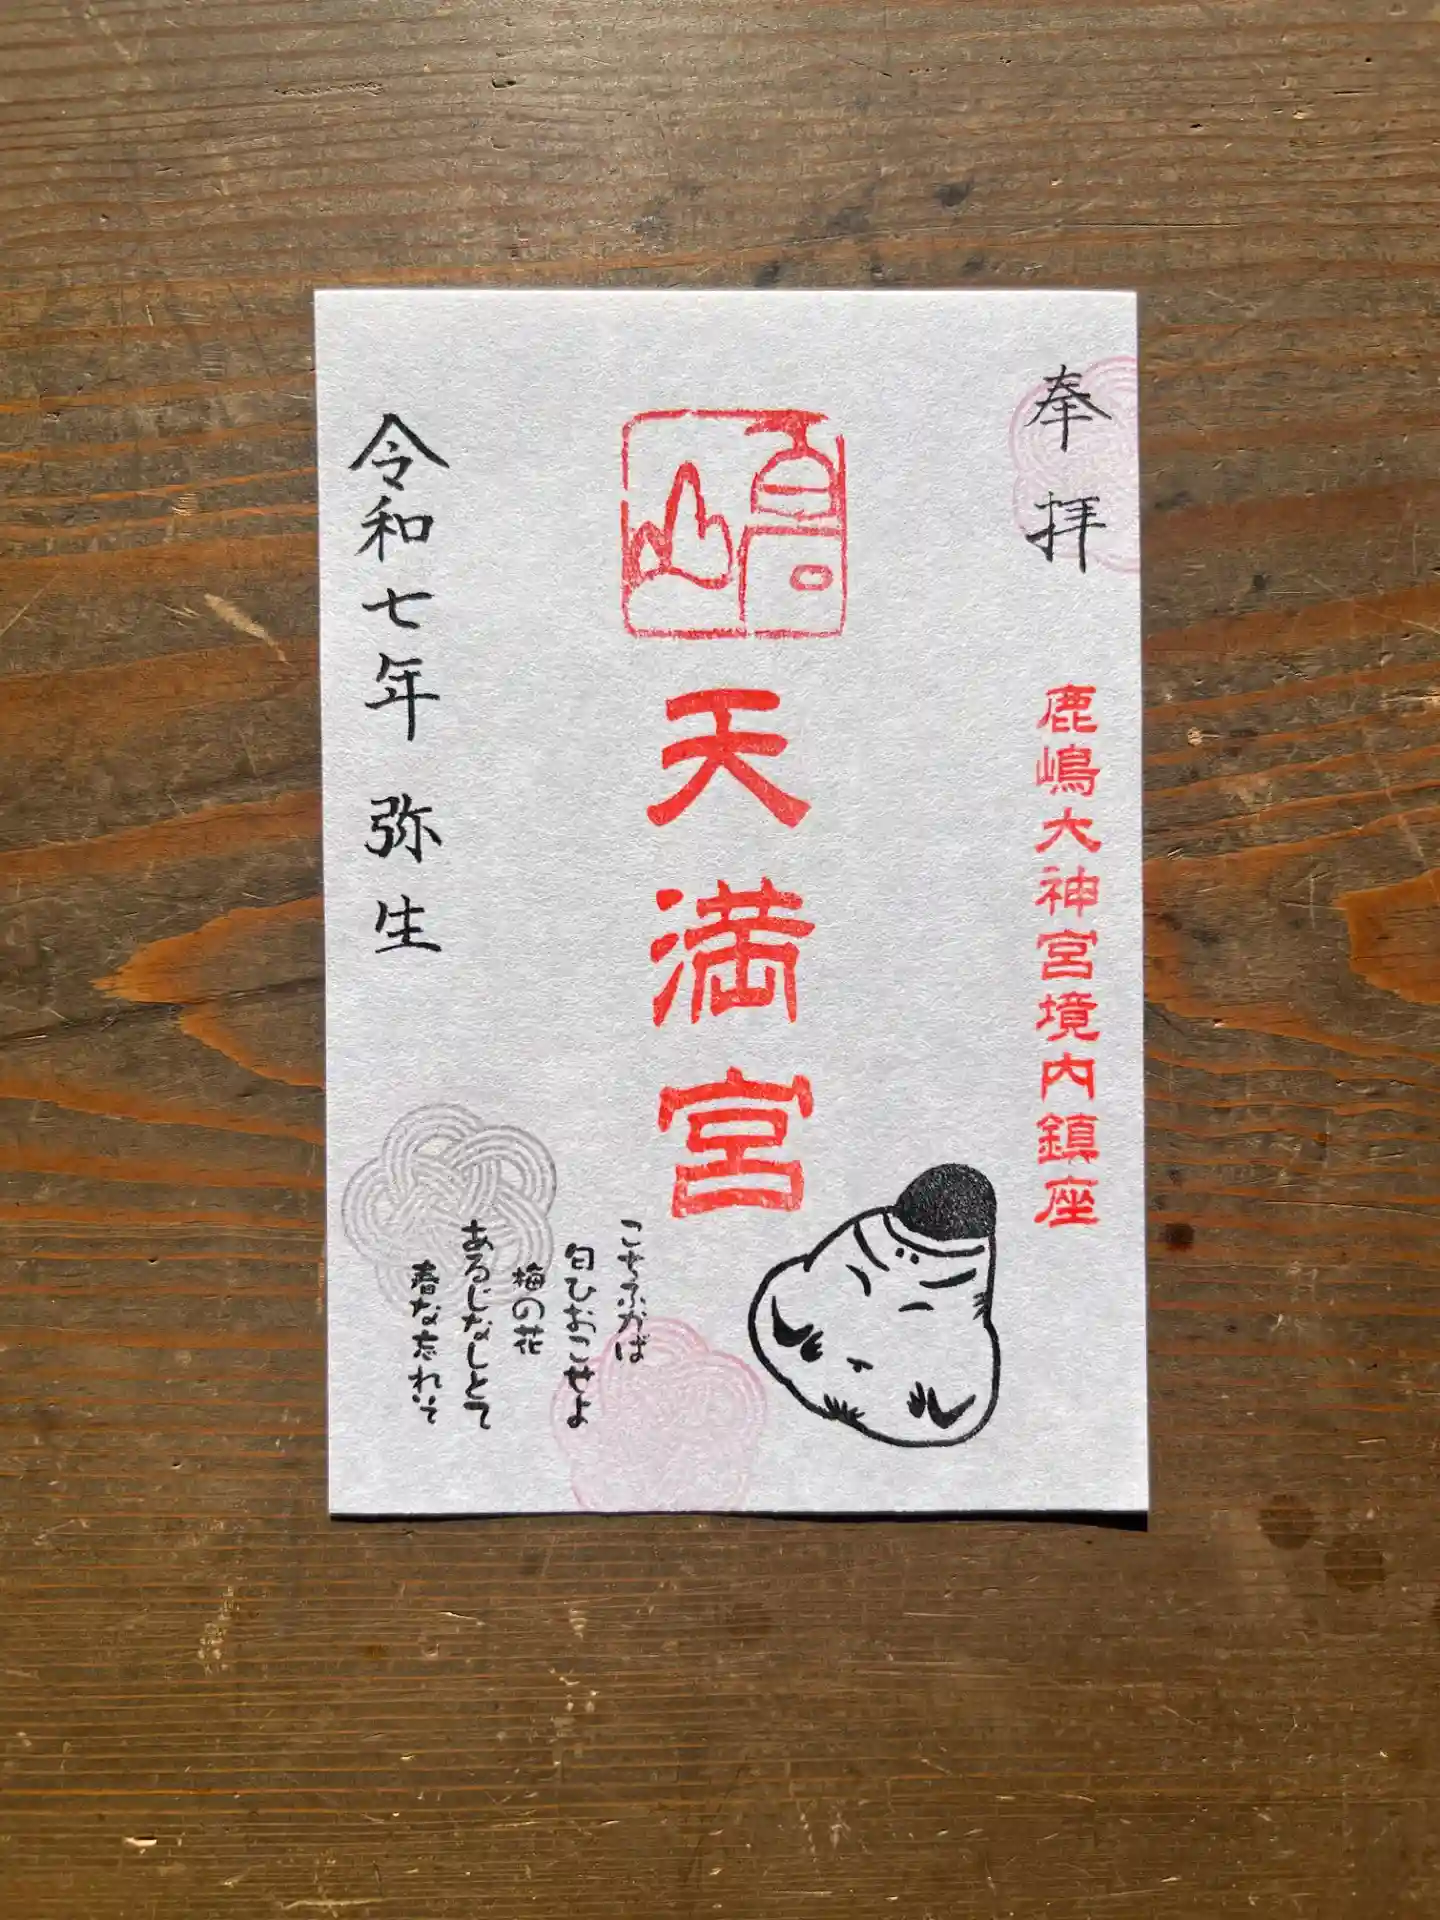 奉拝
鹿嶋大神宮境内鎮座
嶋
天満宮
こちふかば
匂ひおこせよ
梅の花
あるじなしとて
春な忘れそ
令和七年 弥生